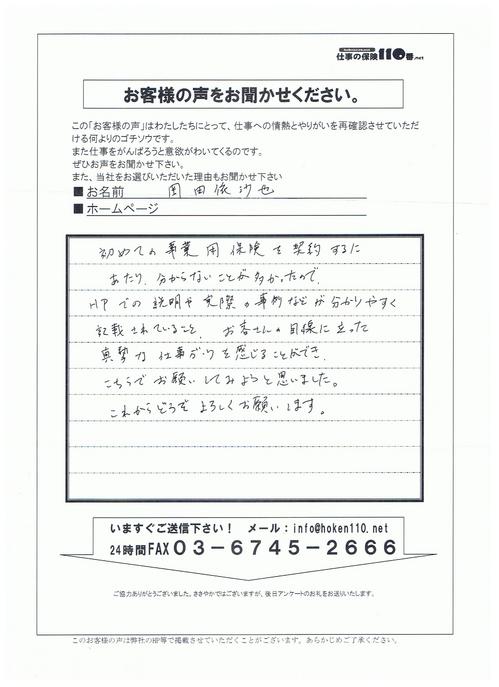 仕事の保険110番.net
お客様の声をお聞かせください。
この「お客様の声」はわたしたちにとって、仕事への情熱とやりがいを再確認させていただ
ける何よりのゴチソウです。
また仕事をがんばろうと意欲がわいてくるのです。
ぜひお声をお聞かせ下さい。
また、当社をお選びいただいた理由もお聞かせ下さい
■お名前 岡田依沙也
■ホームページ
初めての事業用保険を契約するに
あたり、分からないことが多かったので、
HPでの説明や実際の事例などが分かりやすく
記載されていること、お客さんの目線に立った
真摯な仕事ぶりを感じることができ、
こちらでお願いしてみようと思いました。
これからどうぞよろしくお願いします。
いますぐご送信下さい! メール:info@hoken110.net
24時間FAX03-6745-2666
ご協力ありがとうございました。ささやかではございますが、後日アンケートのお礼をお送りいたします。
このお客様の声は弊社のHP等で掲載させていただくことがございます。あらかじめご了承ください。